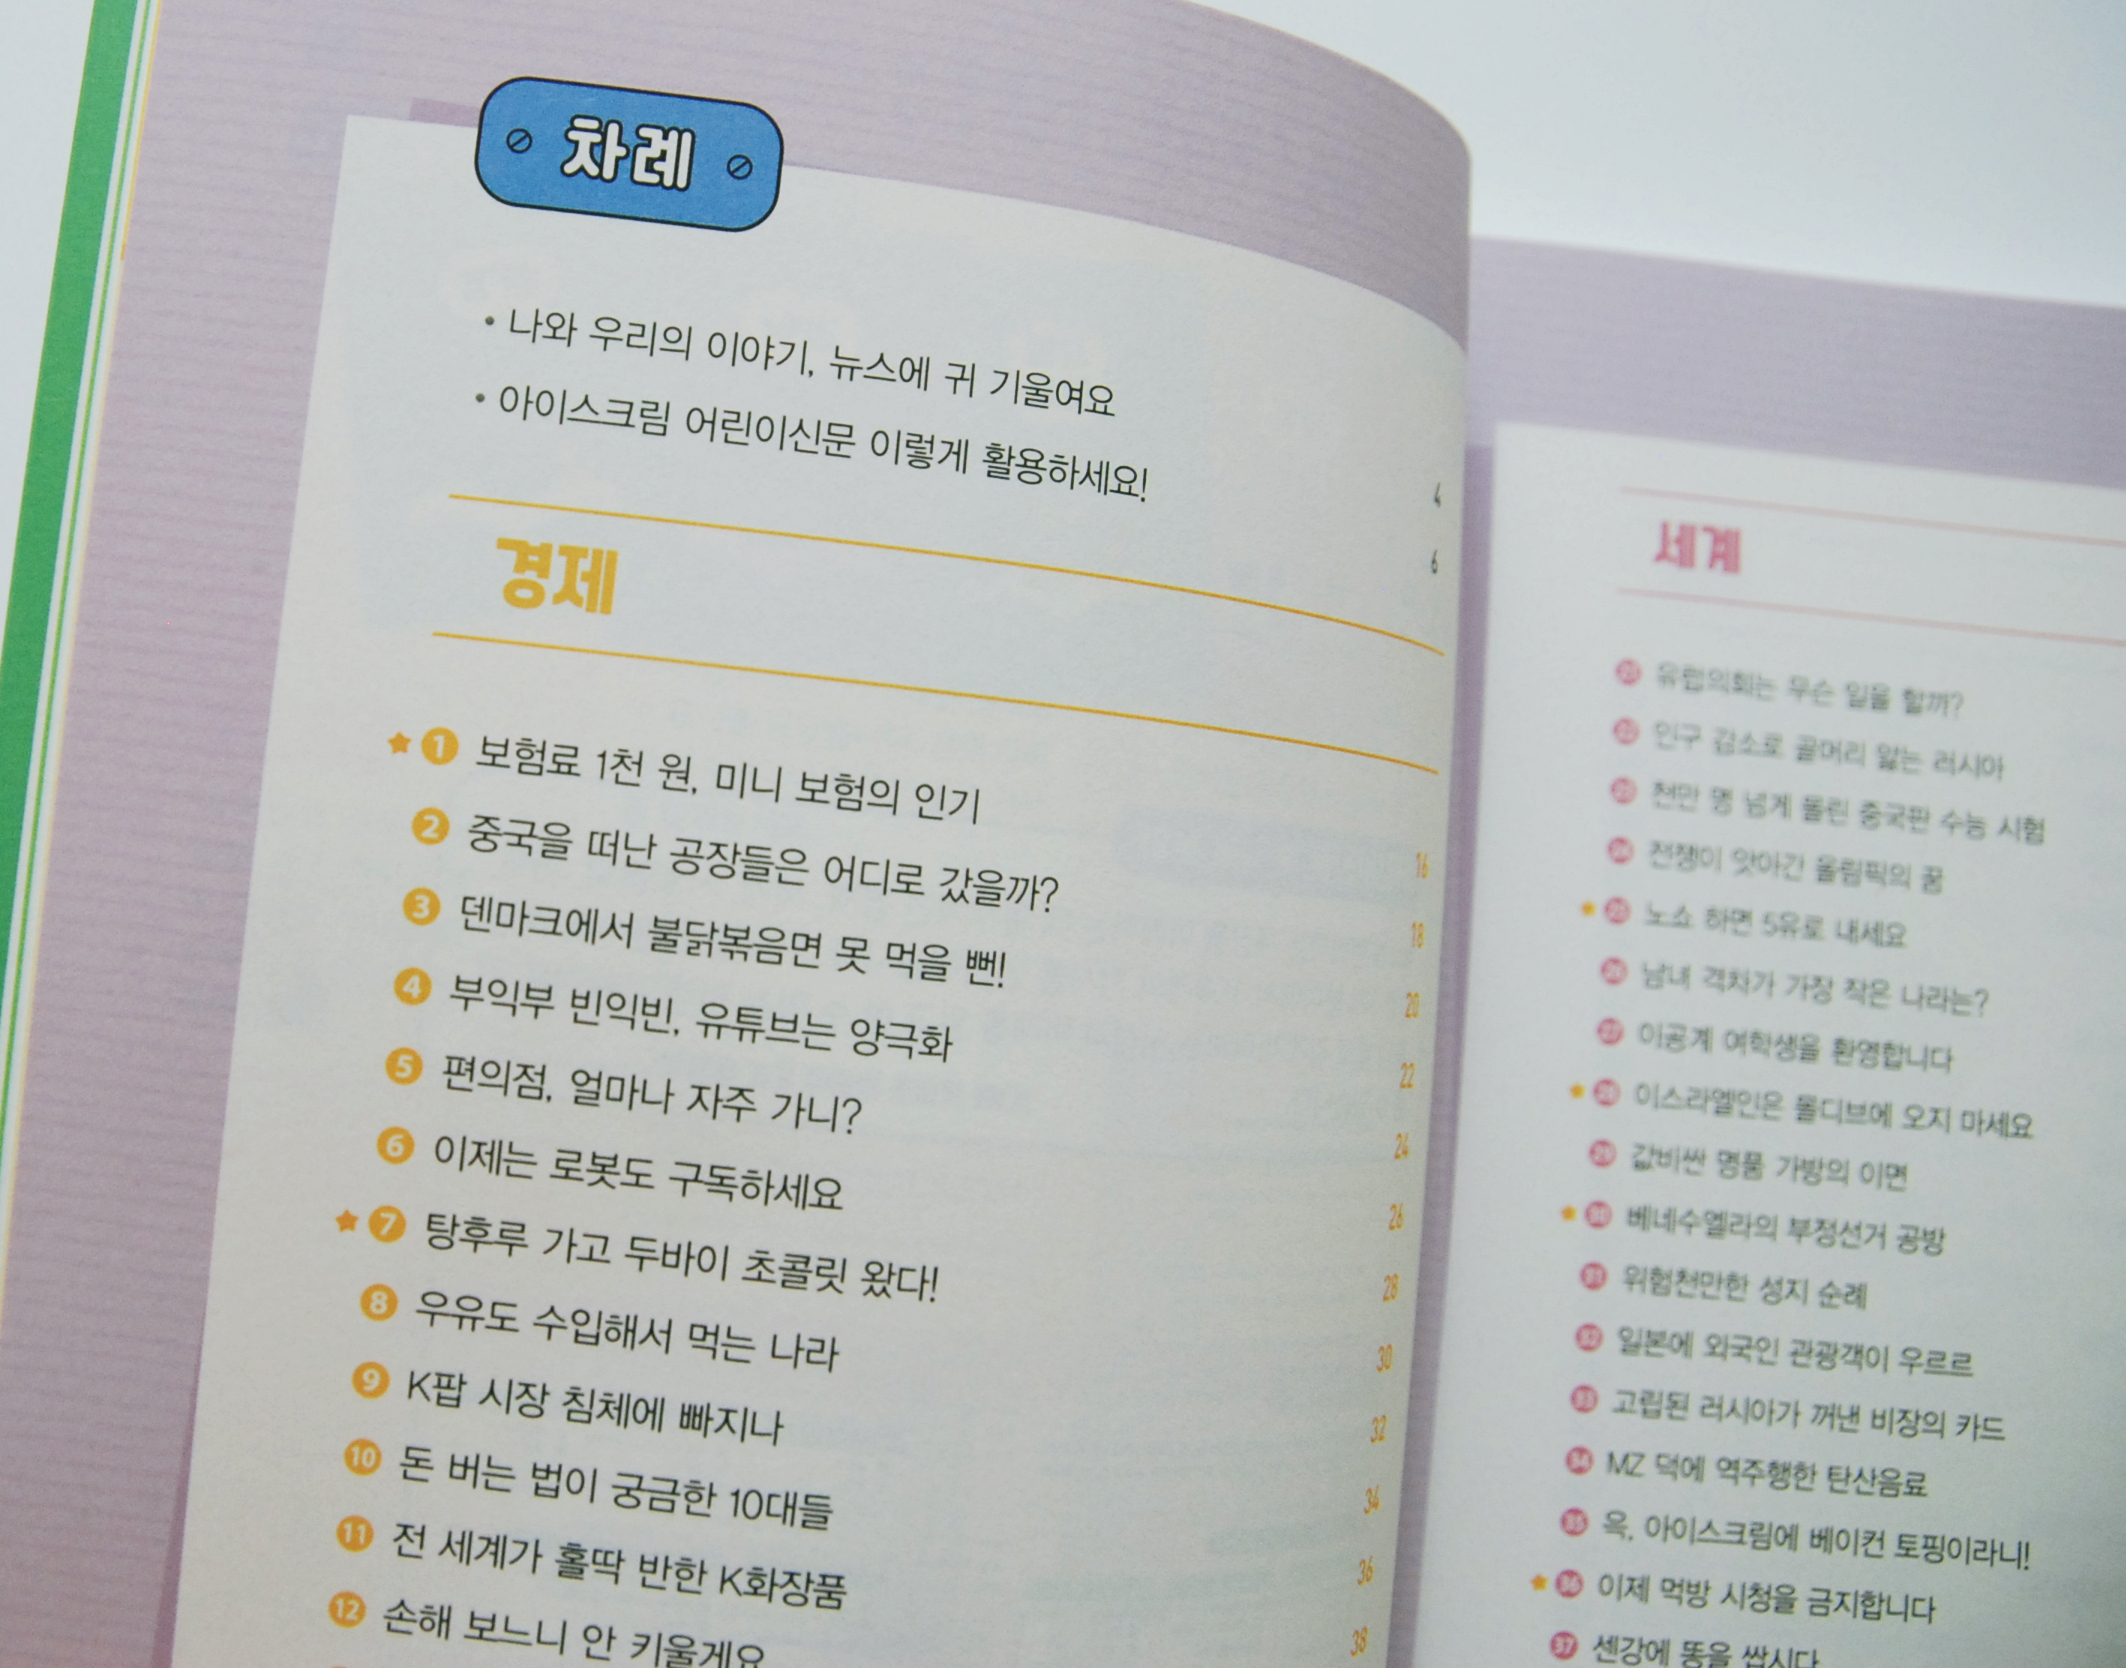 차례
• 나와 우리의 이야기, 뉴스에 귀 기울여요 4
• 아이스크림 어린이신문 이렇게 활용하세요! 6
경제
★ 1 보험료 1천 원, 미니 보험의 인기 16
2 중국을 떠난 공장들은 어디로 갔을까? 18
3 덴마크에서 불닭볶음면 못 먹을 뻔! 20
4 부익부 빈익빈, 유튜브는 양극화 22
5 편의점, 얼마나 자주 가니? 24
6 이제는 로봇도 구독하세요 26
★ 7 탕후루 가고 두바이 초콜릿 왔다! 28
8 우유도 수입해서 먹는 나라 30
9 K팝 시장 침체에 빠지나 32
10 돈 버는 법이 궁금한 10대들 34
11 전 세계가 홀딱 반한 K화장품 36
12 손해 보느니 안 키울게요 38
세계
21 유럽의회는 무슨 일을 할까?
22 인구 감소로 골머리 앓는 러시아
23 천만 명 넘게 몰린 중국판 수능 시험
24 전쟁이 앗아간 올림픽의 꿈
★ 25 노쇼 하면 5유로 내세요
26 남녀 격차가 가장 작은 나라는?
27 이공계 여학생을 환영합니다
★ 28 이스라엘인은 몰디브에 오지 마세요
29 값비싼 명품 가방의 이면
★ 30 베네수엘라의 부정선거 공방
31 위험천만한 성지 순례
32 일본에 외국인 관광객이 우르르
33 고립된 러시아가 꺼낸 비장의 카드
34 MZ 덕에 역주행한 탄산음료
35 윽, 아이스크림에 베이컨 토핑이라니!
★ 36 이제 먹방 시청을 금지합니다
37 센강에 똥을 쌉시다